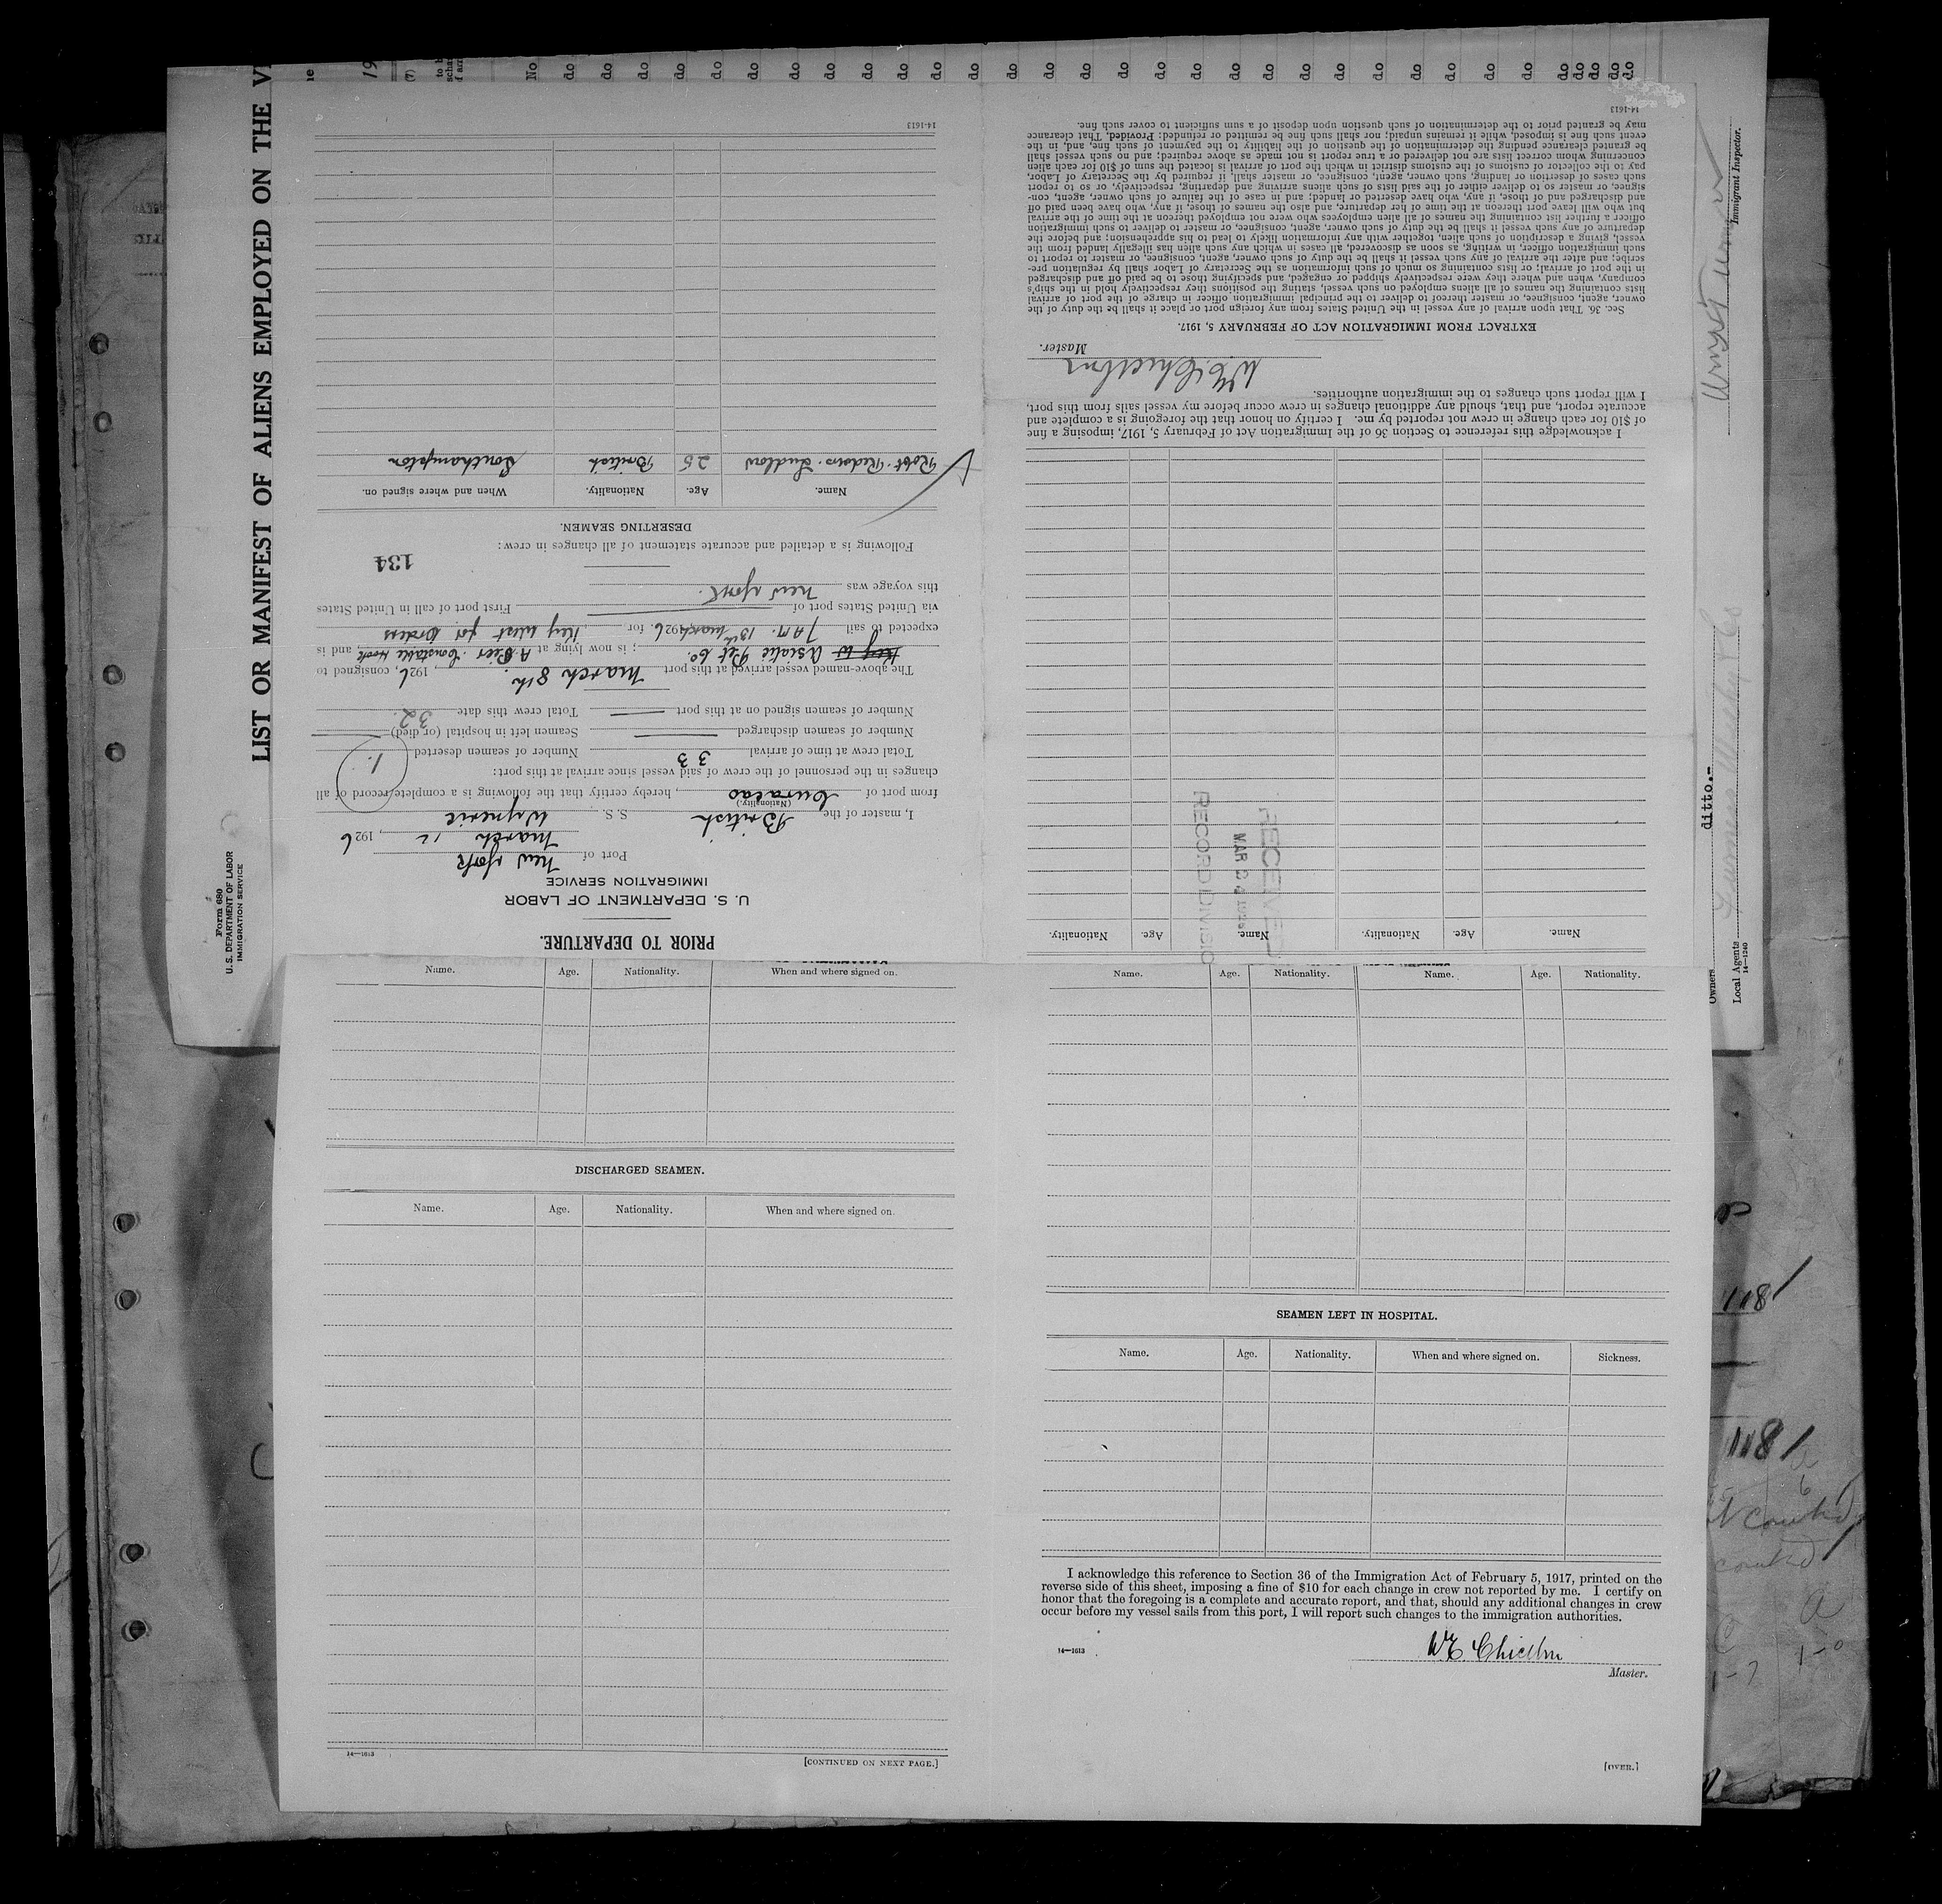 LIST OR MANIFEST OF ALIENS EMPLOYED ON THE
Form 680
U. S. DEPARTMENT OF LABOR
IMMIGRATION SERVICE
PRIOR TO DEPARTURE.
U. S. DEPARTMENT OF LABOR
IMMIGRATION SERVICE
Port of New York
March 12, 1926
I, master of the British S. S. Wyneric
(Nationality.)
from port of Curacao, hereby certify that the following is a complete record of all
changes in the personnel of the crew of said vessel since arrival at this port:
Total crew at time of arrival 33 Number of seamen deserted 1.
Number of seamen discharged — Seamen left in hospital (or died) —
Number of seamen signed on at this port — Total crew this date 32.
The above-named vessel arrived at this port March 8th, 1926, consigned to
Asiatic Pet Co.; is now lying at A Pier. Constable Hook, and is
expected to sail 7 AM. 13th March 1926. for Key West for Orders
via United States port of — First port of call in United States
this voyage was New York.
134
Following is a detailed and accurate statement of all changes in crew:
DESERTING SEAMEN.
Name. Age. Nationality. When and where signed on.
Robt. Redvers. Ludlow 25 British Southampton
14-1613
Name. Age. Nationality. Name. Age. Nationality.
RECEIVED
MAR 1926
RECORD DIVISIO
I acknowledge this reference to Section 36 of the Immigration Act of February 5, 1917, imposing a fine
of $10 for each change in crew not reported by me. I certify on honor that the foregoing is a complete and
accurate report, and that, should any additional changes in crew occur before my vessel sails from this port,
I will report such changes to the immigration authorities.
Master.
EXTRACT FROM IMMIGRATION ACT OF FEBRUARY 5, 1917.
Sec. 36. That upon arrival of any vessel in the United States from any foreign port or place it shall be the duty of the
owner, agent, consignee, or master thereof to deliver to the principal immigration officer in charge of the port of arrival
lists containing the names of all aliens employed on such vessel, stating the positions they respectively hold in the ship's
company, when and where they were respectively shipped or engaged, and specifying those to be paid off and discharged
in the port of arrival; or lists containing so much of such information as the Secretary of Labor shall by regulation pre-
scribe; and after the arrival of any such vessel it shall be the duty of such owner, agent, consignee, or master to report to
such immigration officer, in writing, as soon as discovered, all cases in which any such alien has illegally landed from the
vessel, giving a description of such alien, together with any information likely to lead to his apprehension; and before the
departure of any such vessel it shall be the duty of such owner, agent, consignee, or master to deliver to such immigration
officer a further list containing the names of all alien employees who were not employed thereon at the time of the arrival
but who will leave port thereon at the time of her departure, and also the names of those, if any, who have been paid off
and discharged and of those, if any, who have deserted or landed; and in case of the failure of such owner, agent, con-
signee, or master so to deliver either of the said lists of such aliens arriving and departing, respectively, or so to report
such cases of desertion or landing, such owner, agent, consignee, or master shall, if required by the Secretary of Labor,
pay to the collector of customs of the customs district in which the port of arrival is located the sum of $10 for each alien
concerning whom correct lists are not delivered or a true report is not made as above required; and no such vessel shall
be granted clearance pending the determination of the question of the liability to the payment of such fine, and, in the
event such fine is imposed, while it remains unpaid; nor shall such fine be remitted or refunded: Provided, That clearance
may be granted prior to the determination of such question upon deposit of a sum sufficient to cover such fine.
14-1613
No do do do do do do do do do do do do do do do do do do do do do do do do do do do do do
Immigrant Inspector.
ditto.-
Owners
Local Agents
14—1240
Name. Age. Nationality. When and where signed on.
DISCHARGED SEAMEN.
Name. Age. Nationality. When and where signed on.
14—1613 [CONTINUED ON NEXT PAGE.]
Name. Age. Nationality. Name. Age. Nationality.
SEAMEN LEFT IN HOSPITAL.
Name. Age. Nationality. When and where signed on. Sickness.
I acknowledge this reference to Section 36 of the Immigration Act of February 5, 1917, printed on the
reverse side of this sheet, imposing a fine of $10 for each change in crew not reported by me. I certify on
honor that the foregoing is a complete and accurate report, and that, should any additional changes in crew
occur before my vessel sails from this port, I will report such changes to the immigration authorities.
14—1613
Master.
[OVER.]